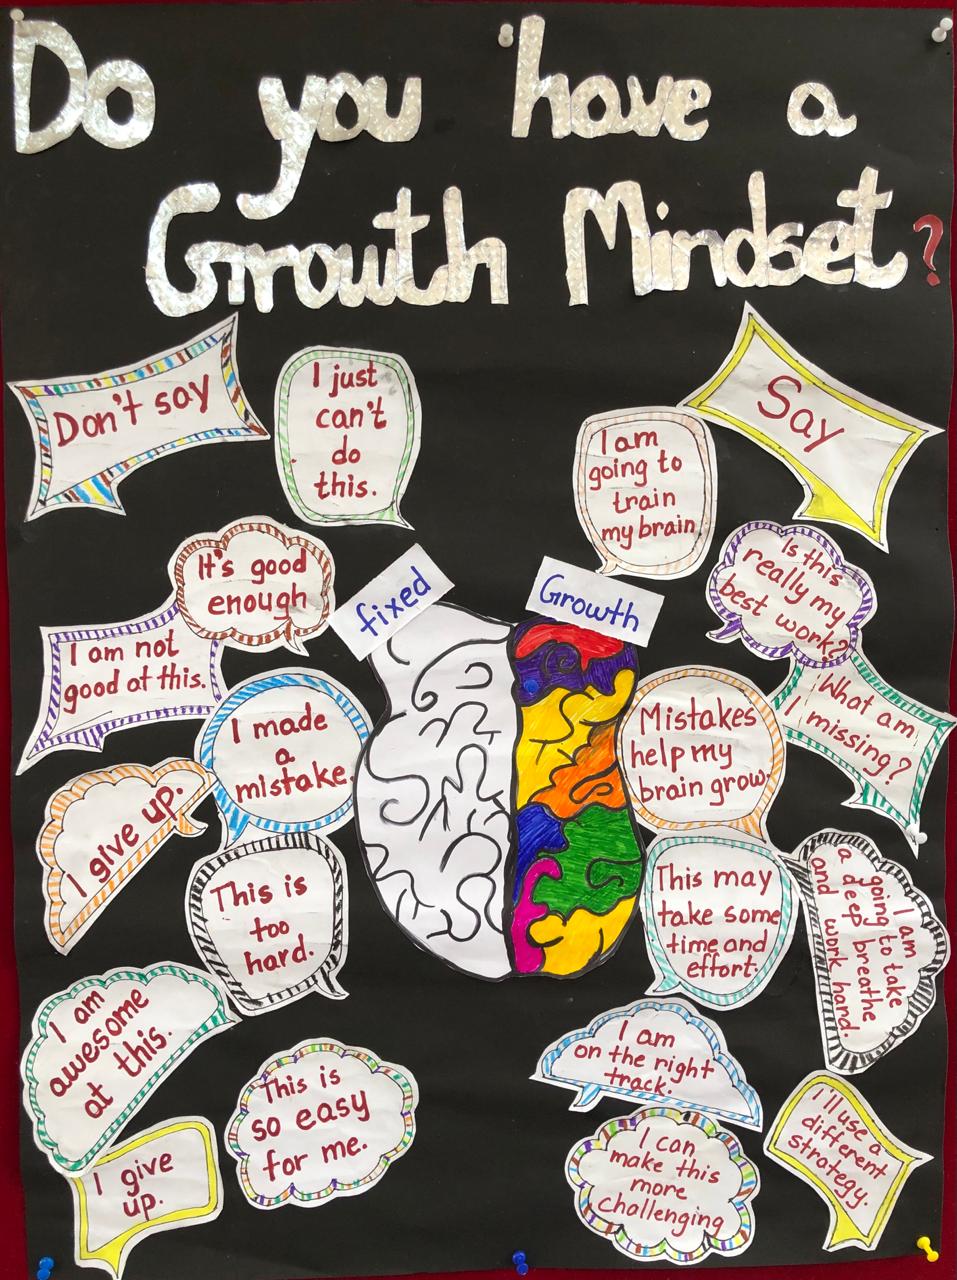 Do you have a
Growth Mindset?
Don't say
I just
can't
do
this.
It's good
enough
I am not
good at this.
I made
a
mistake.
I give up.
This is
too
hard.
I am
awesome
at this.
This is
so easy
for me.
I give
up.
fixed
Growth
Say
I am
going to
train
my brain
Is this
really my
best work?
What am
I missing?
Mistakes
help my
brain grow.
This may
take some
time and
effort.
I am
going to take
a deep breathe
and work hard.
I am
on the right
track.
I'll use a
different
strategy.
I can
make this
more
challenging